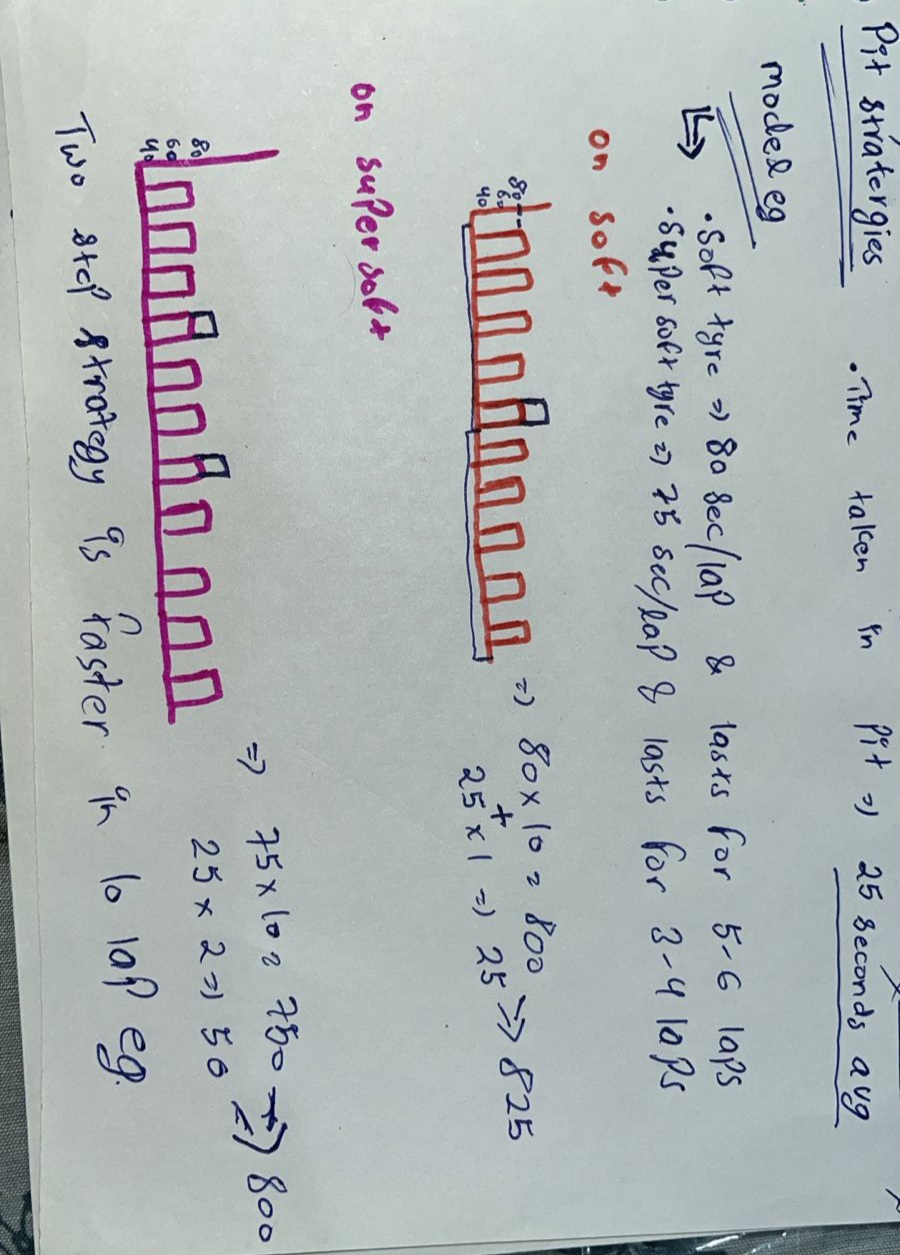 Pit stratergies
• Time taken in pit => 25 seconds avg
model eg
• Soft tyre => 80 sec/lap & lasts for 5-6 laps
• Super soft tyre => 75 sec/lap & lasts for 3-4 laps
on soft
80
60
40
=> 80 x 10 = 800
+
25 x 1 => 25 => 825
on super soft
80
60
40
=> 75 x 10 = 750
25 x 2 => 50 => 800
Two step strategy is faster in 10 lap eg.